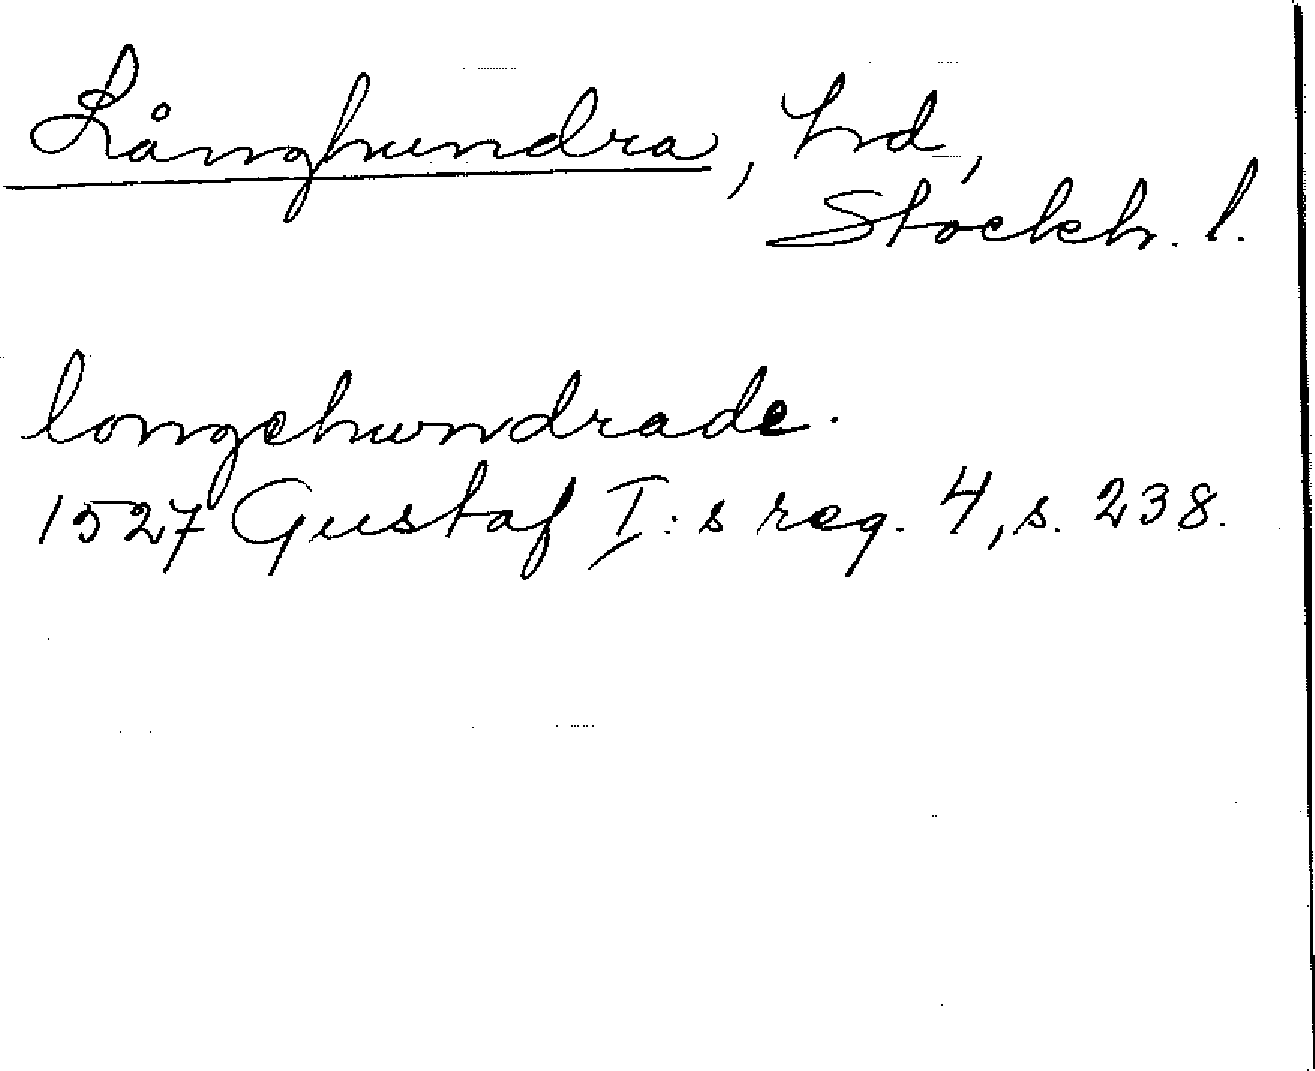 Långhundra, hd,
Stockh. l.
longehwndrade.
1527 Gustaf I:s reg. 4, s. 238.